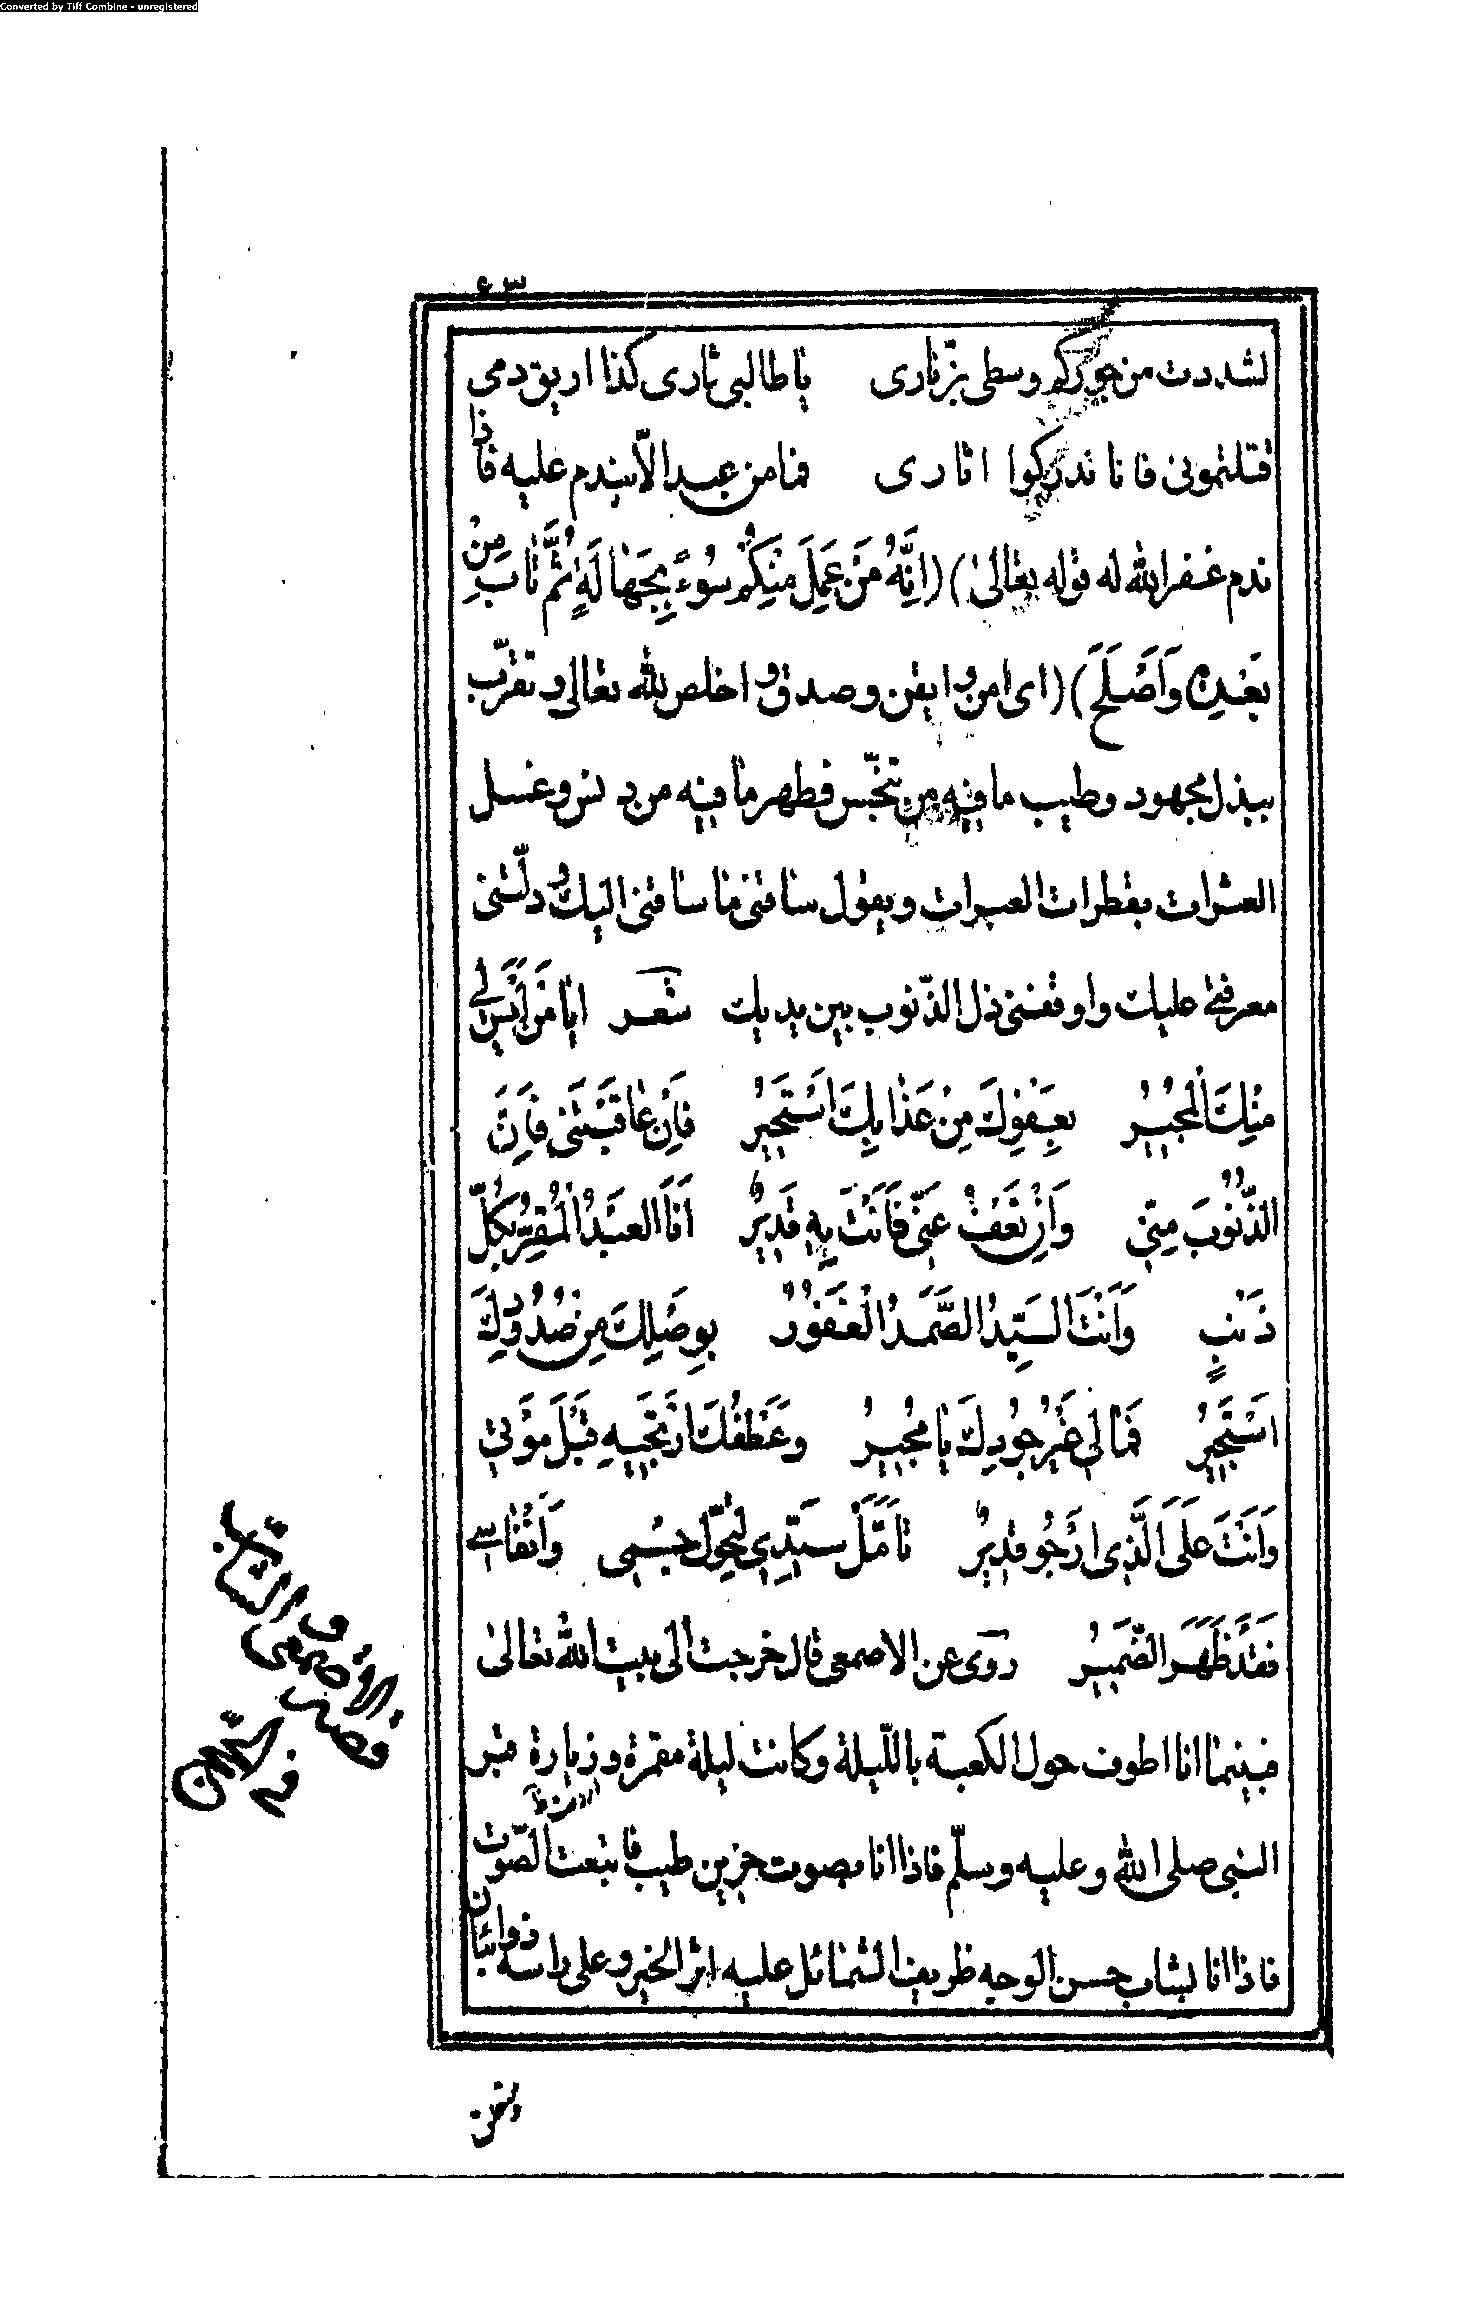 Converted by Tiff Combine - unregistered
٤٣
لشددت من جوركم وسطى بزنارى يا طالبى ثارى كذا اريق دمى
قتلتمونى فانا ندركوا اثارى فما من عبد الا سيندم عليه فاذا
ندم غفر الله له قوله تعالىٰ) (اِنَّهُ مَنْ عَمِلَ مِنْكُمْ سُوءً بِجَهَالَةٍ ثُمَّ تَابَ مِنْ
بَعْدِهٖ وَاَصْلَحَ) (اى امن و ايقن و صدق و اخلص لله تعالى و تقرّب
ببذل مجهود و طيب ما فيه من تنجّس فطهر ما فيه من دنس و غسل
العثرات بقطرات العبرات ويقول ساقنى ما ساقنى اليك و دلّتنى
معرفتى عليك واوقفنى ذل الذّنوب بين يديك شعر ايا مَنْ لَيْسَ لِى
مِنْكَ الْمُجِيْرُ بِعَفْوِكَ مِنْ عَذَابِكَ اَسْتَجِيْرُ فَاِنْ عَاقَبْتَنِى فَاِنَّ
الذُّنُوبَ مِنِّى وَاِنْ تَعْفُ عَنِّى فَاَنْتَ بِهِ قَدِيْرٌ اَنَا الْعَبْدُ الْمُقِرُّ بِكُلِّ
ذَنْبٍ وَاَنْتَ السَّيِّدُ الصَّمَدُ الْغَفُوْرُ بِوَصْلِكَ مِنْ صُدُوْدِكَ
اَسْتَجِيْرُ فَمَا لِى غَيْرُ جُوْدِكَ يَا مُجِيْرُ وَعَطْفُكَ اَرْتَجِيْهِ قَبْلَ مَوْتِى
وَاَنْتَ عَلَى الَّذِى اَرْجُو قَدِيْرٌ تَاَمَّلْ سَيِّدِى لِنُحُوْلِ جِسْمِى وَاَنْفَاسِى
فَقَدْ ظَهَرَ الضَّمِيْرُ روى عن الاصمعى قال خرجت الى بيت الله تعالىٰ
فبينما انا اطوف حول الكعبة بالليلة وكانت ليلة مقمرة و زيارة قبر
النبى صلى الله و عليه وسلّم فاذا انا بصوت حزين طيب فاتبعت الصّوت
فاذا انا بشاب حسن الوجه ظريف الشمائل عليه اثر الخير و على راسه ذوابتان
قصة الاصمعى و الشاب